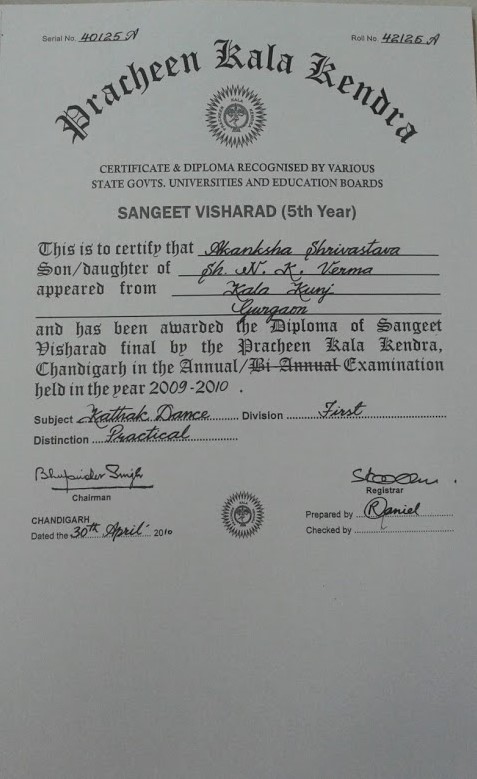 Serial No. 40125 A
Roll No. 42126 A
Pracheen Kala Kendra
CERTIFICATE & DIPLOMA RECOGNISED BY VARIOUS
STATE GOVTS. UNIVERSITIES AND EDUCATION BOARDS
SANGEET VISHARAD (5th Year)
This is to certify that Akanksha Shrivastava
Son/daughter of Sh. N. K. Verma
appeared from Kala Kunj
Gurgaon
and has been awarded the Diploma of Sangeet
Visharad final by the Pracheen Kala Kendra,
Chandigarh in the Annual/Bi-Annual Examination
held in the year 2009-2010 .
Subject Kathak Dance Division First
Distinction Practical
Bhupinder Singh
Chairman
Registrar
CHANDIGARH
Dated the 30th April 2010
Prepared by Daniel
Checked by